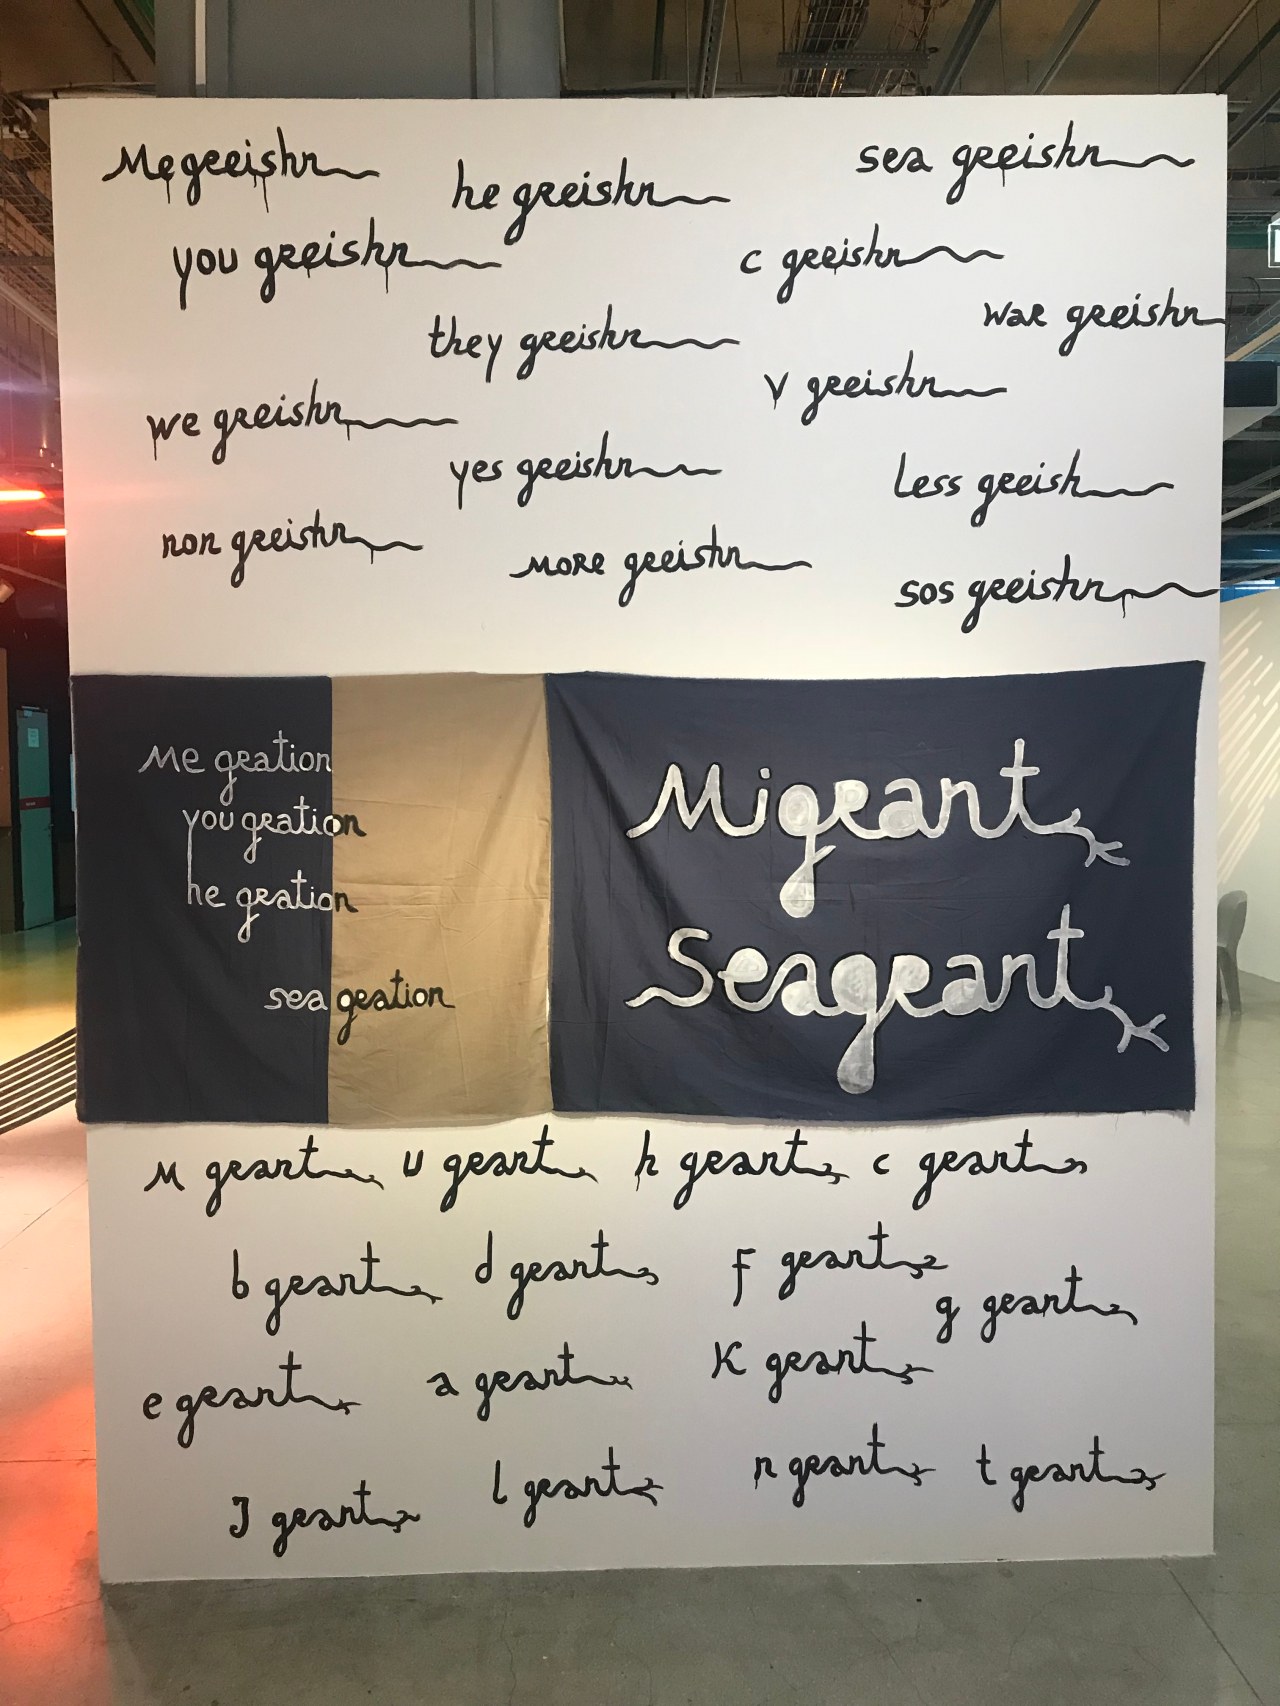 Megreishn
he greishn
sea greishn
you greishn
c greishn
they greishn
war greishn
v greishn
we greishn
yes greishn
less greish
non greishn
more greishn
sos greishn
me gration
you gration
he gration
sea gration
Migrant
Seagrant
M grant u grant h grant c grant
b grant d grant f grant
g grant
e grant a grant K grant
J grant l grant n grant t grant